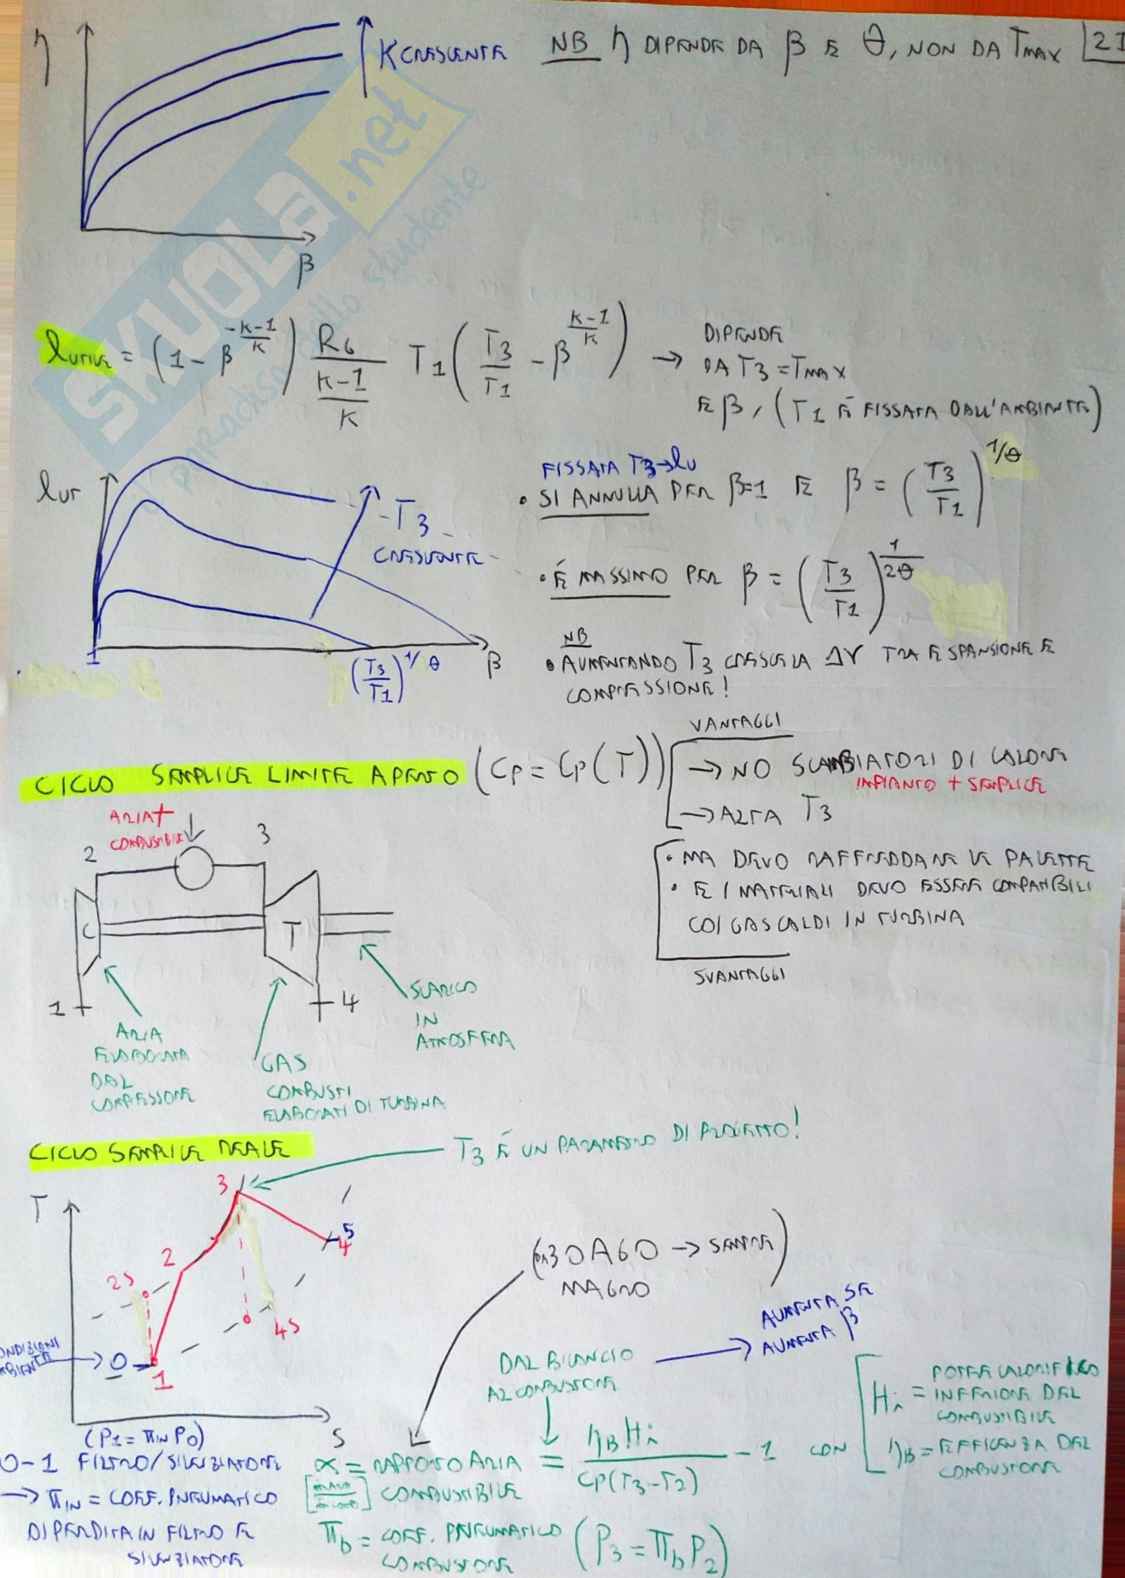 η
K CRESCENTE
NB η DIPENDE DA β E θ, NON DA TMAX
21
β
SKUOLA.net
paradiso dello studente
lu = (1 - β^(-(K-1)/K)) R6/((K-1)/K) T1 (T3/T1 - β^((K-1)/K)) → DIPENDE
DA T3 = TMAX
E β, (T1 È FISSATA DALL'AMBIENTE)
lur
T3
CRESCENTE
1
(T3/T1)^(1/θ)
β
FISSATA T3 → lu
• SI ANNULLA PER β=1 E β = (T3/T1)^(1/θ)
• È MASSIMO PER β = (T3/T1)^(1/2θ)
NB
• AUMENTANDO T3 CRESCE LA ΔV TRA ESPANSIONE E
COMPRESSIONE!
CICLO SEMPLICE LIMITE APERTO (CP = CP(T))
VANTAGGI
→ NO SCAMBIATORI DI CALORE
IMPIANTO + SEMPLICE
→ ALTA T3
• MA DEVO RAFFREDDARE LE PALETTE
• E I MATERIALI DEVO ESSERE COMPATIBILI
COI GAS CALDI IN TURBINA
SVANTAGGI
ARIA +
COMBUSTIBILE
2
3
C
T
1
4
ARIA
ELABORATA
DAL
COMPRESSORE
GAS
COMBUSTI
ELABORATI DI TURBINA
SCARICO
IN
ATMOSFERA
CICLO SEMPLICE REALE
T3 È UN PARAMETRO DI PROGETTO!
T
3
5
4
2
2S
4S
CONDIZIONI
AMBIENTE
0
1
S
(DA 30 A 60 → SEMPRE)
MAGRO
DAL BILANCIO
AL COMBUSTORE
AUMENTA SE
AUMENTA β
(P1 = πIN P0)
0-1 FILTRO/SILENZIATORE
→ πIN = COEFF. PNEUMATICO
DI PERDITA IN FILTRO E
SILENZIATORE
α = RAPPORTO ARIA
COMBUSTIBILE
= ηB Hi / CP(T3-T2) - 1 CON
Hi = POTERE CALORIFICO
INFERIORE DEL
COMBUSTIBILE
ηB = EFFICENZA DEL
COMBUSTORE
πb = COEFF. PNEUMATICO
COMBUSTORE
(P3 = πb P2)